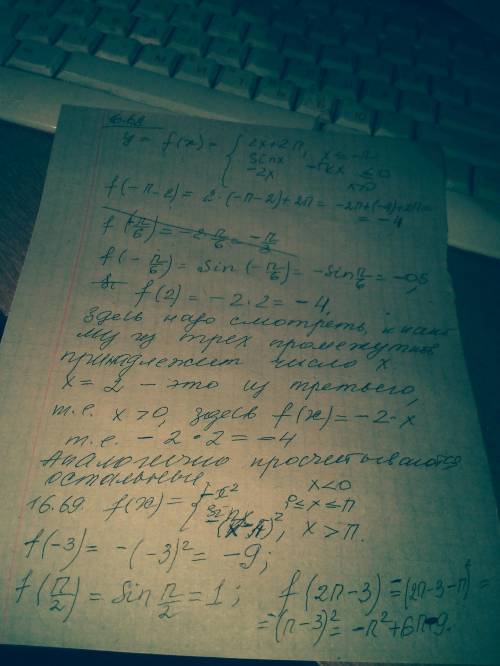 16.68
y = f(x) = { 2x+2π, x ≤ -π
sinx -π<x ≤0
-2x x>0
f(-π-2) = 2·(-π-2)+2π = -2π+(-4)+2π=
= -4
f(π/6) = -2 π/6 = -π/3
f(-π/6) = sin(-π/6) = -sin π/6 = -0,5
f(2) = -2·2 = -4,
Здесь надо смотреть, к како
му из трех промежутков
принадлежит число x
x = 2 – это из третьего,
т.е. x > 0, здесь f(x) = -2·x
т.е. -2·2 = -4
Аналогично просчитываются
остальные
16.69. f(x) = { -x² x<0
sin x 0≤x≤π
-(x-π)², x > π.
f(-3) = -(-3)² = -9;
f(π/2) = sin π/2 = 1; f(2π-3) = (2π-3-π)² =
= -(π-3)² = -π²+6π-9.